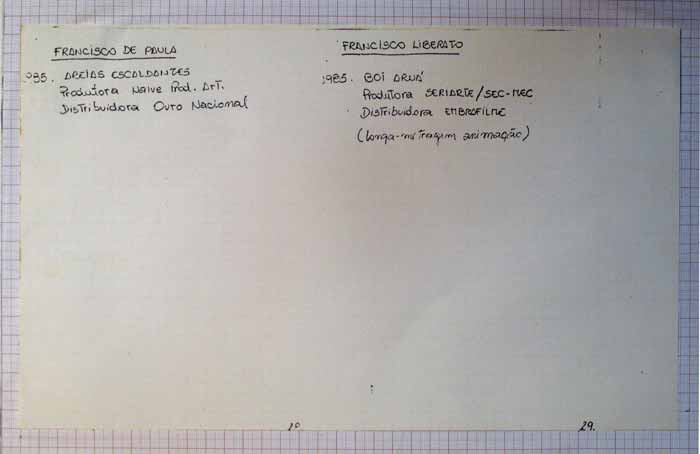 FRANCISCO DE PAULA
1985. AREIAS ESCALDANTES
Produtora Naive Prod. Art.
Distribuidora Ouro Nacional
FRANCISCO LIBERATO
1985. BOI ARUÁ
Produtora SERIARTE/SEC-MEC
Distribuidora EMBRAFILME
(longa-metragem animação)
29.